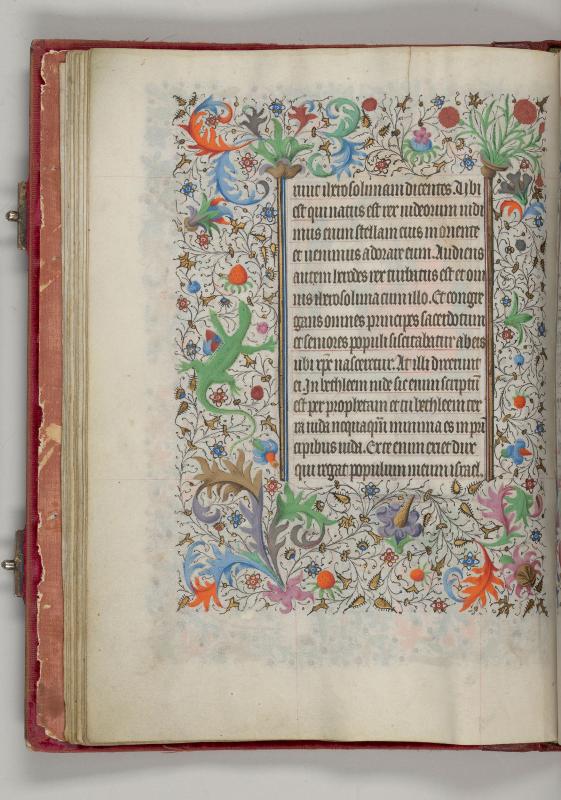 runt iherosolimam dicentes. Ubi
est qui natus est rex iudeorum uidi
mus enim stellam eius in oriente
et uenimus adorare eum. Audiens
autem herodes rex turbatus est et om
nis iherosolima cum illo. Et congre
gans omnes principes sacerdotum
et seniores populi siscitabatur ab eis
ubi xpc nasceretur. At illi dixerunt
ei. In bethleem iude sic enim scriptū
est per prophetam et tu bethleem ter
ra iuda nequaqm̄ minima es in prī
cipibus iuda. Ex te enim exiet dux
qui regat populum meum israel.